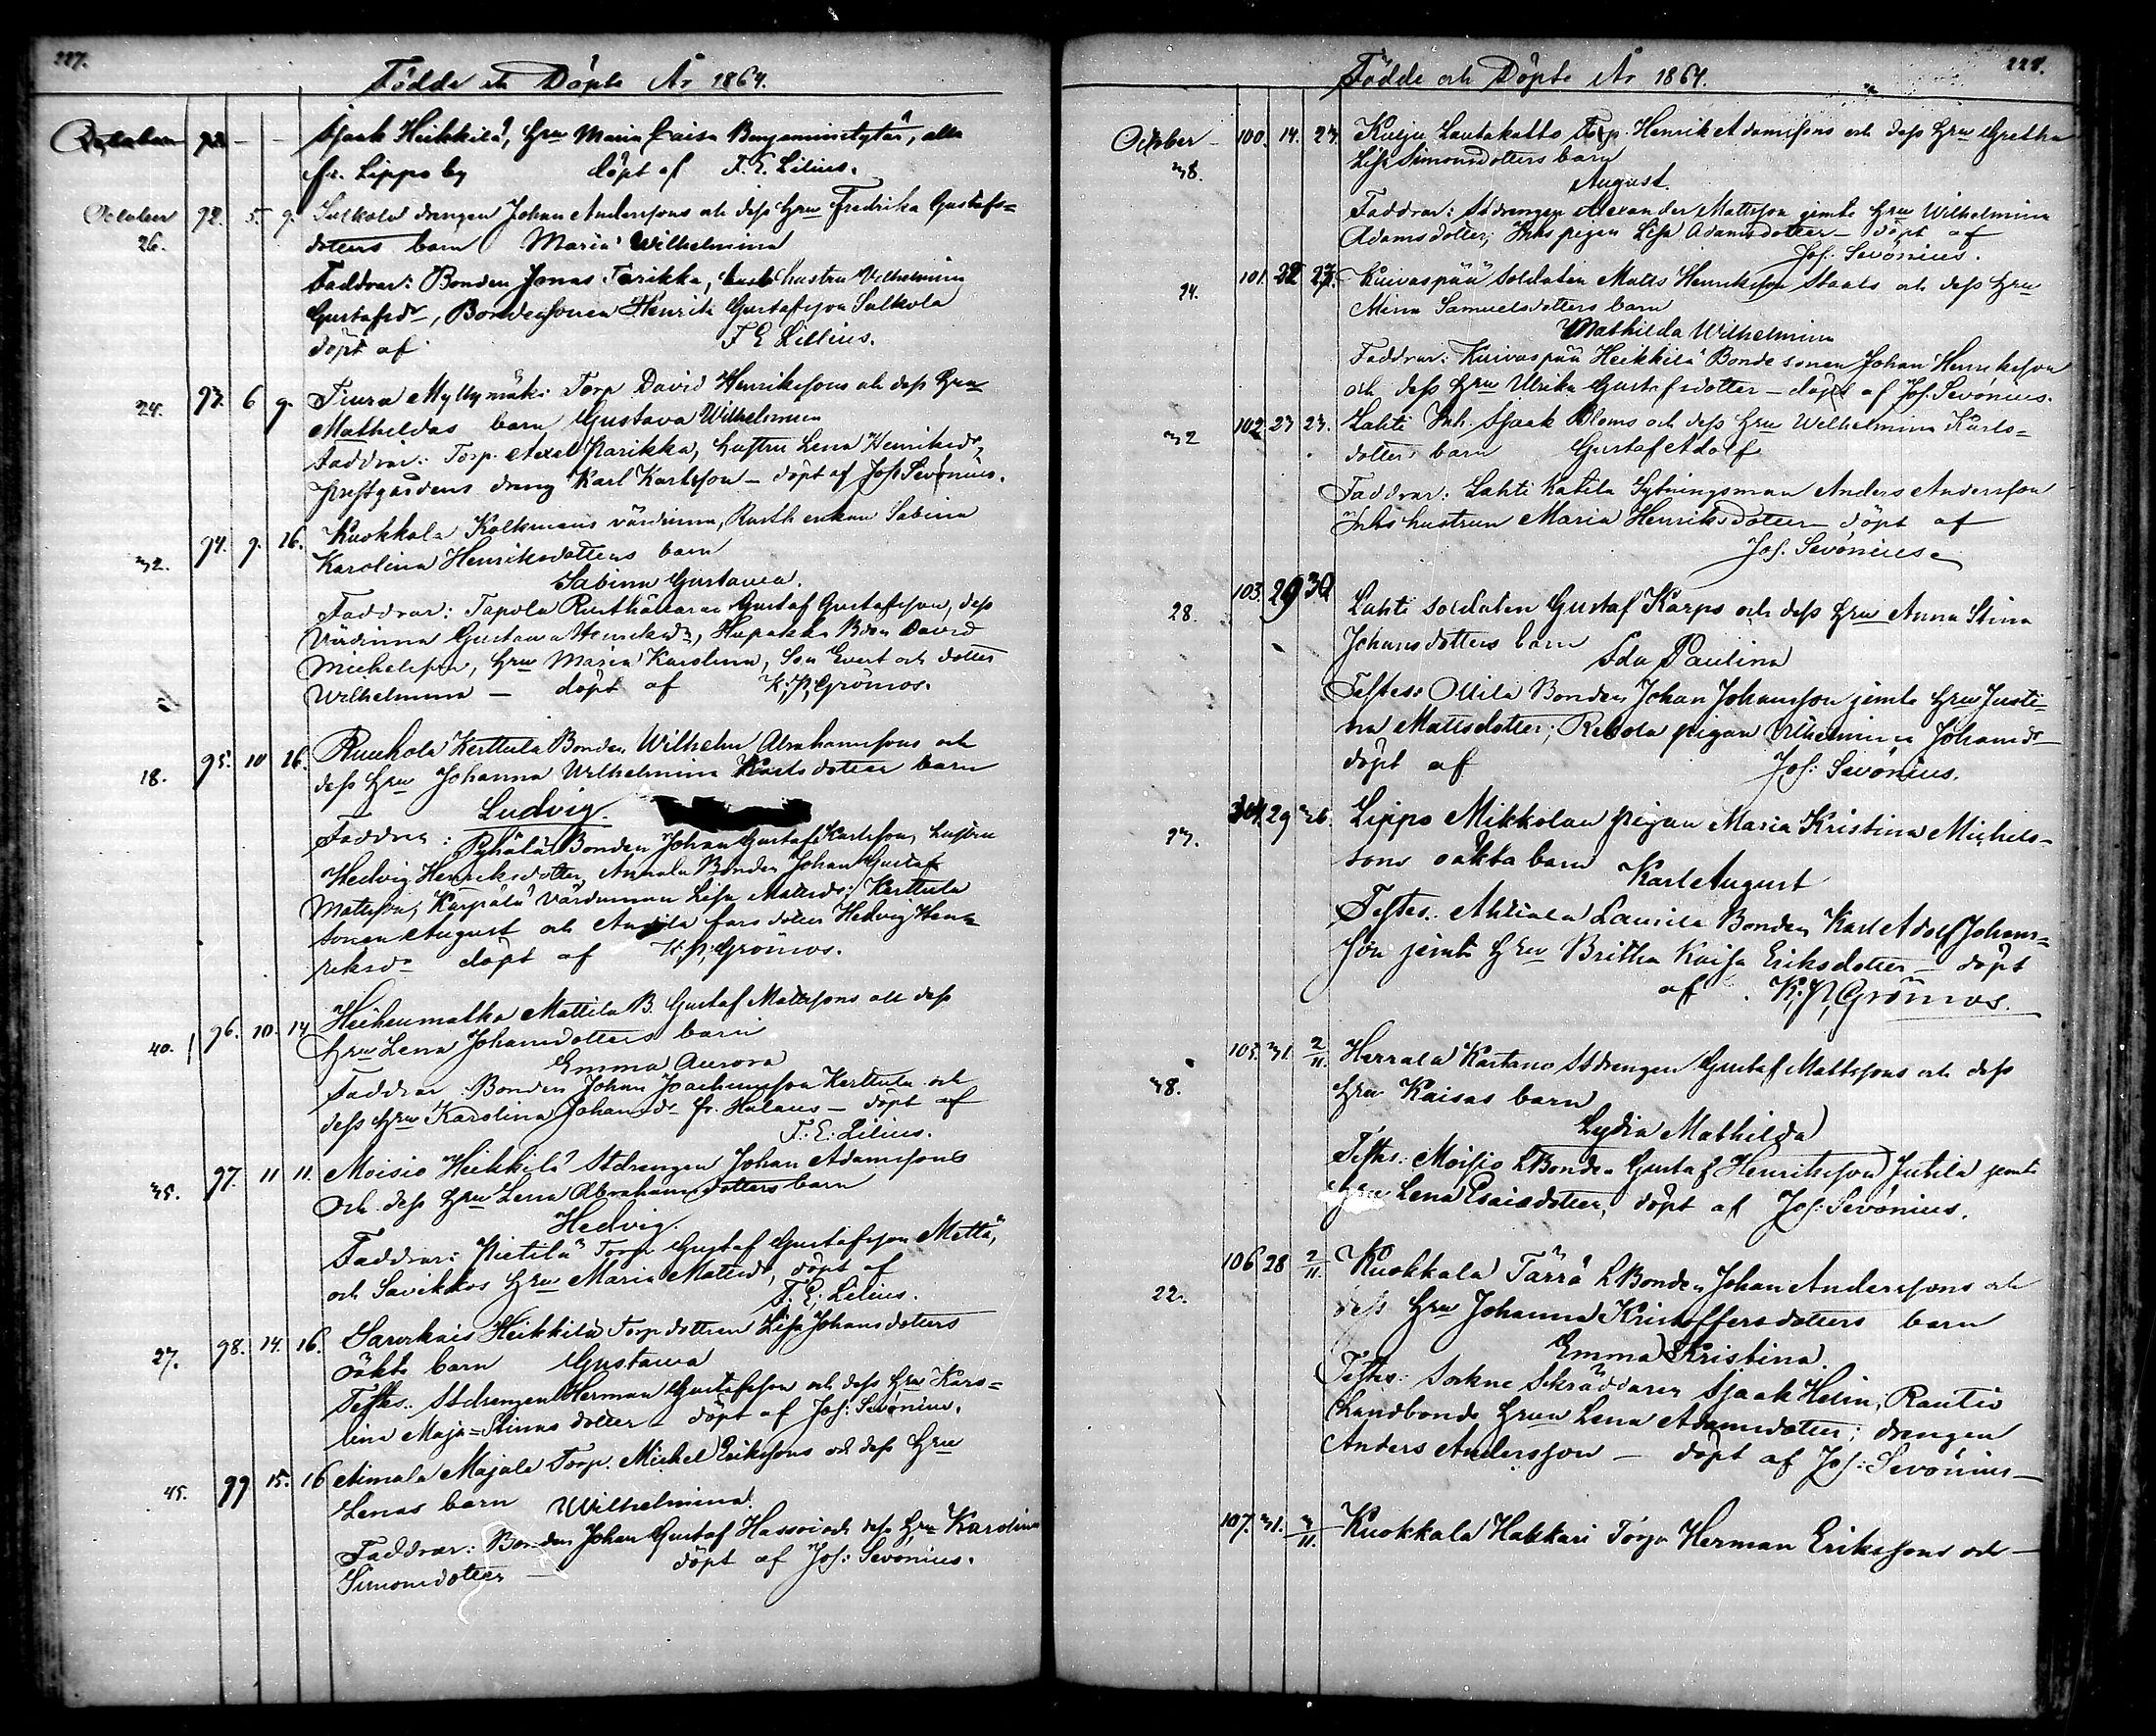 227.
Födde och Döpte År 1864.
October 92. - - Isaak Heikkilä, hru Maria Caisa Benjaminsdytär, alla
fr. Lippo by döpt af F. E. Lilius.
October 92. 5. 9. Sulkola drengen Johan Anderssons och dess hru Fredrika Gustafs=
26. dotters barn Maria Wilhelmina
Faddrar: Bonden Jonas Tarikka, hustru Wilhelmina
Gustafsdr, Bondesonen Henrik Gustafsson Sulkola
döpt af F E Lilius.
24. 93. 6 9. Tiura Myllymäki Torp David Henrikssons och dess hru
Mathildas barn Gustava Wilhelmina
Faddrar: Torp. Axel Karikka, hustru Lena Henriksdr,
prestgårdens dreng Karl Karlsson – döpt af Jos. Sevonius.
32. 94. 9. 16. Kuokkala Kolkmans värdinna, Rusth. enkan Sabina
Karolina Henriksdotters barn
Sabina Gustawa.
Faddrar: Tapola Rusthållaren Gustaf Gustafsson, dess
Värdinna Gustawa Henriksdr, Hupakka Bdn David
Michelsson, hru Maria Karolina, Son Evert och dotter
Wilhelmina – döpt af K. P. Grönros.
18. 95. 10 16. Ruuhola Kerttula Bonden Wilhelm Abrahamssons och
dess hru Johanna Wilhelmina Karlsdotters barn
Ludvig.
Faddrar: Pyhälä Bonden Johan Gustaf Karlsson, hustru
Hedvig Henriksdotter, Annala Bonden Johan Gustaf
Mattsson, Karpälä Värdinnan Lisa Mattsdr; Kerttula
sonen August och Anjola fars dotter Hedvig Hen=
riksdr döpt af K. P. Grönros.
40. 96. 10. 14 Heikenmatka Mattila B. Gustaf Mattssons och dess
hru Lena Johansdotters barn
Emma Aurora
Faddrar Bonden Johan Joachimsson Kerttula och
dess hru Karolina Johansdr fr. Hulaus – döpt af
F: E: Lilius.
35. 97. 11 11. Moisio Heikkilä Stdrengen Johan Adamssons
och dess hru Lena Abrahamsdotters barn
Hedvig.
Faddrar: Pietilä Torp Gustaf Gustafsson Mettä,
och Savikkos hru Maria Mattsdr, döpt af
F. E. Lilius.
27. 98. 14. 16. Heikkilä Torpdottren Lisa Johansdotters
oäkta barn Gustawa
Testes: Stdrengen Herman Gustafsson och dess hru Karo=
lina Maja=Stinas dotter – döpt af Jos: Sevonius.
45. 99 15. 16 Aimala Majala Torp. Michel Erikssons och dess hru
Lenas barn Wilhelmina
Faddrar: Bonden Johan Gustaf Hassoi och dess hru Karolina
Simonsdotter – döpt af Jos: Sevonius.
228.
Födde och Döpte År 1864.
October 100. 14. 23. Kulju Lautakatto Torp. Henrik Adamssons och dess hru Gretha
38. Lisa Simonsdotters barn
August.
Faddrar: Stdrengen Alexander Mattsson jemte hru Wilhelmina
Adamsdotter, Inhs pigan Lisa Adamsdotter – döpt af
Jos: Sevonius.
24. 101. 22 23. Kuivaspää Soldaten Matts Henriksson Staals och dess hru
Mina Samuelsdotters barn
Mathilda Wilhelmina
Faddrar: Kuivaspää Heikkilä Bonde sonen Johan Henriksson
och dess hru Ulrika Gustafsdotter – döpt af Jos. Sevonius.
32 102. 23 23. Lahti Inh. Isaak Bloms och dess hru Wilhelmina Karls=
dotters barn Gustaf Adolf
Faddrar: Lahti Katila Sytningsman Anders Andersson
Inhs hustrun Maria Henriksdotter döpt af
Jos. Sevonius.
28. 103. 29 30 Lahti Soldaten Gustaf Karps och dess hru Anna Stina
Johansdotters barn
Ida Paulina
Testes: Ollila Bonden Johan Johansson jemte hru Justi=
na Mattsdotter; Rekola pigan Wilhelmina Johansdr
döpt af Jos: Sevonius.
23. 104. 29 26. Lippo Mikkolan pigan Maria Kristina Michels=
sons oäkta barn Karl August
Testes: Ahtiala Laurila Bonden Karl Adolf Johans=
son jemte hru Britha Kaisa Eriksdotter – döpt
af K. P. Grönros.
38. 105. 31. 2/11. Herrala Kartano Stdrengen Gustaf Mattssons och dess
hru Kaisas barn
Lydia Mathilda
Testes: Moisio LBonden Gustaf Henriksson Jutila jemte
hru Lena Esaiedotter, döpt af Jos: Sevonius.
22. 106 28 2/11. Kuokkala Tärrä LBonden Johan Anderssons och
dess hru Johanna Kristoffersdotters barn
Emma Kristina.
Testes: Sockne Skräddaren Isaak Helin; Rautio
Landbonde hrun Lena Adamsdotter; drengen
Anders Andersson – döpt af Jos: Sevonius –
107. 31. 3/11. Kuokkala Hakkari Torp. Herman Erikssons och –